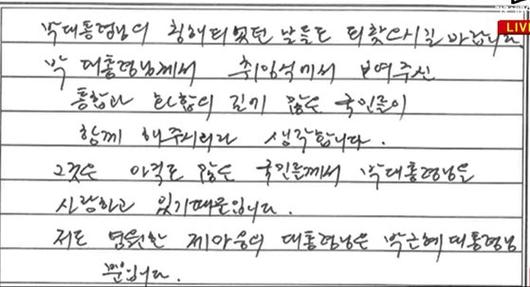 LIV
박대통령님의 침해되었던 날들도 되찾으시길 바랍니다
박 대통령님께서 취임석에서 보여주신
통합과 화합의 길에 많은 국민들이
함께 해주시리라 생각합니다.
그것은 아직도 많은 국민들께서 박대통령님을
사랑하고 있기때문입니다.
저도 영원한 제마음의 대통령님은 박근혜대통령님
뿐입니다.